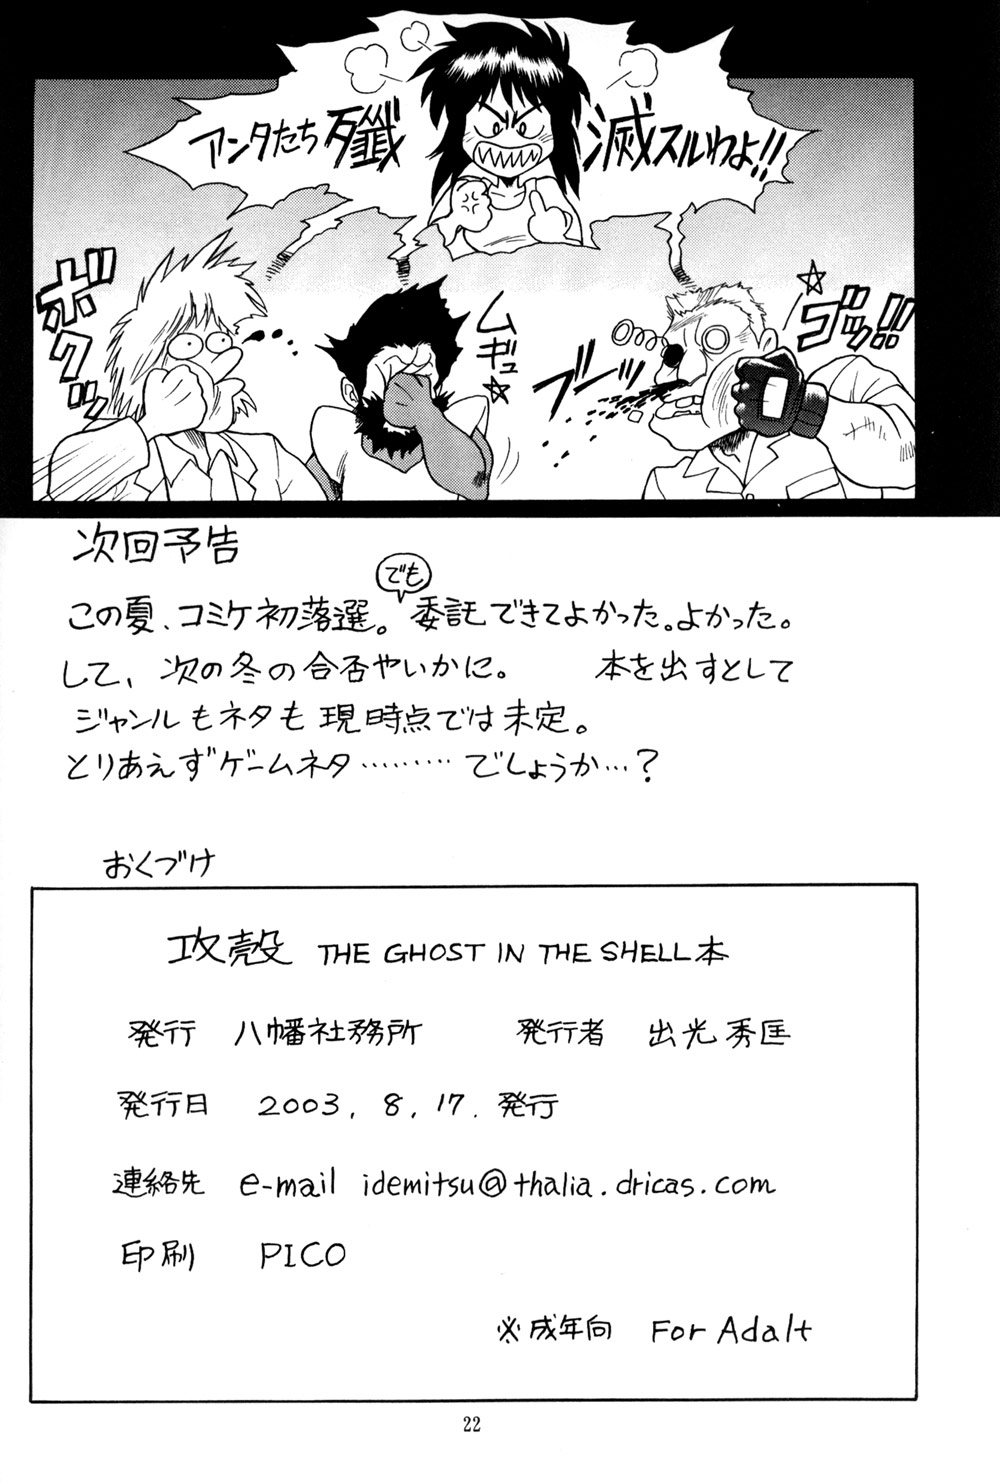 アンタたち殲
滅スルわよ!!
ボクッ
ムギュ☆
ブーッ
☆ゴッ!!
次回予告
でも
この夏、コミケ初落選。委託できてよかった。よかった。
して、次の冬の合否やいかに。 本を出すとして
ジャンルもネタも現時点では未定。
とりあえずゲームネタ………でしょうか…?
おくづけ
攻殻 THE GHOST IN THE SHELL本
発行 八幡社務所 発行者 出光秀匡
発行日 2003. 8. 17. 発行
連絡先 e-mail idemitsu@thalia.dricas.com
印刷 PICO
※成年向 For Adalt
22